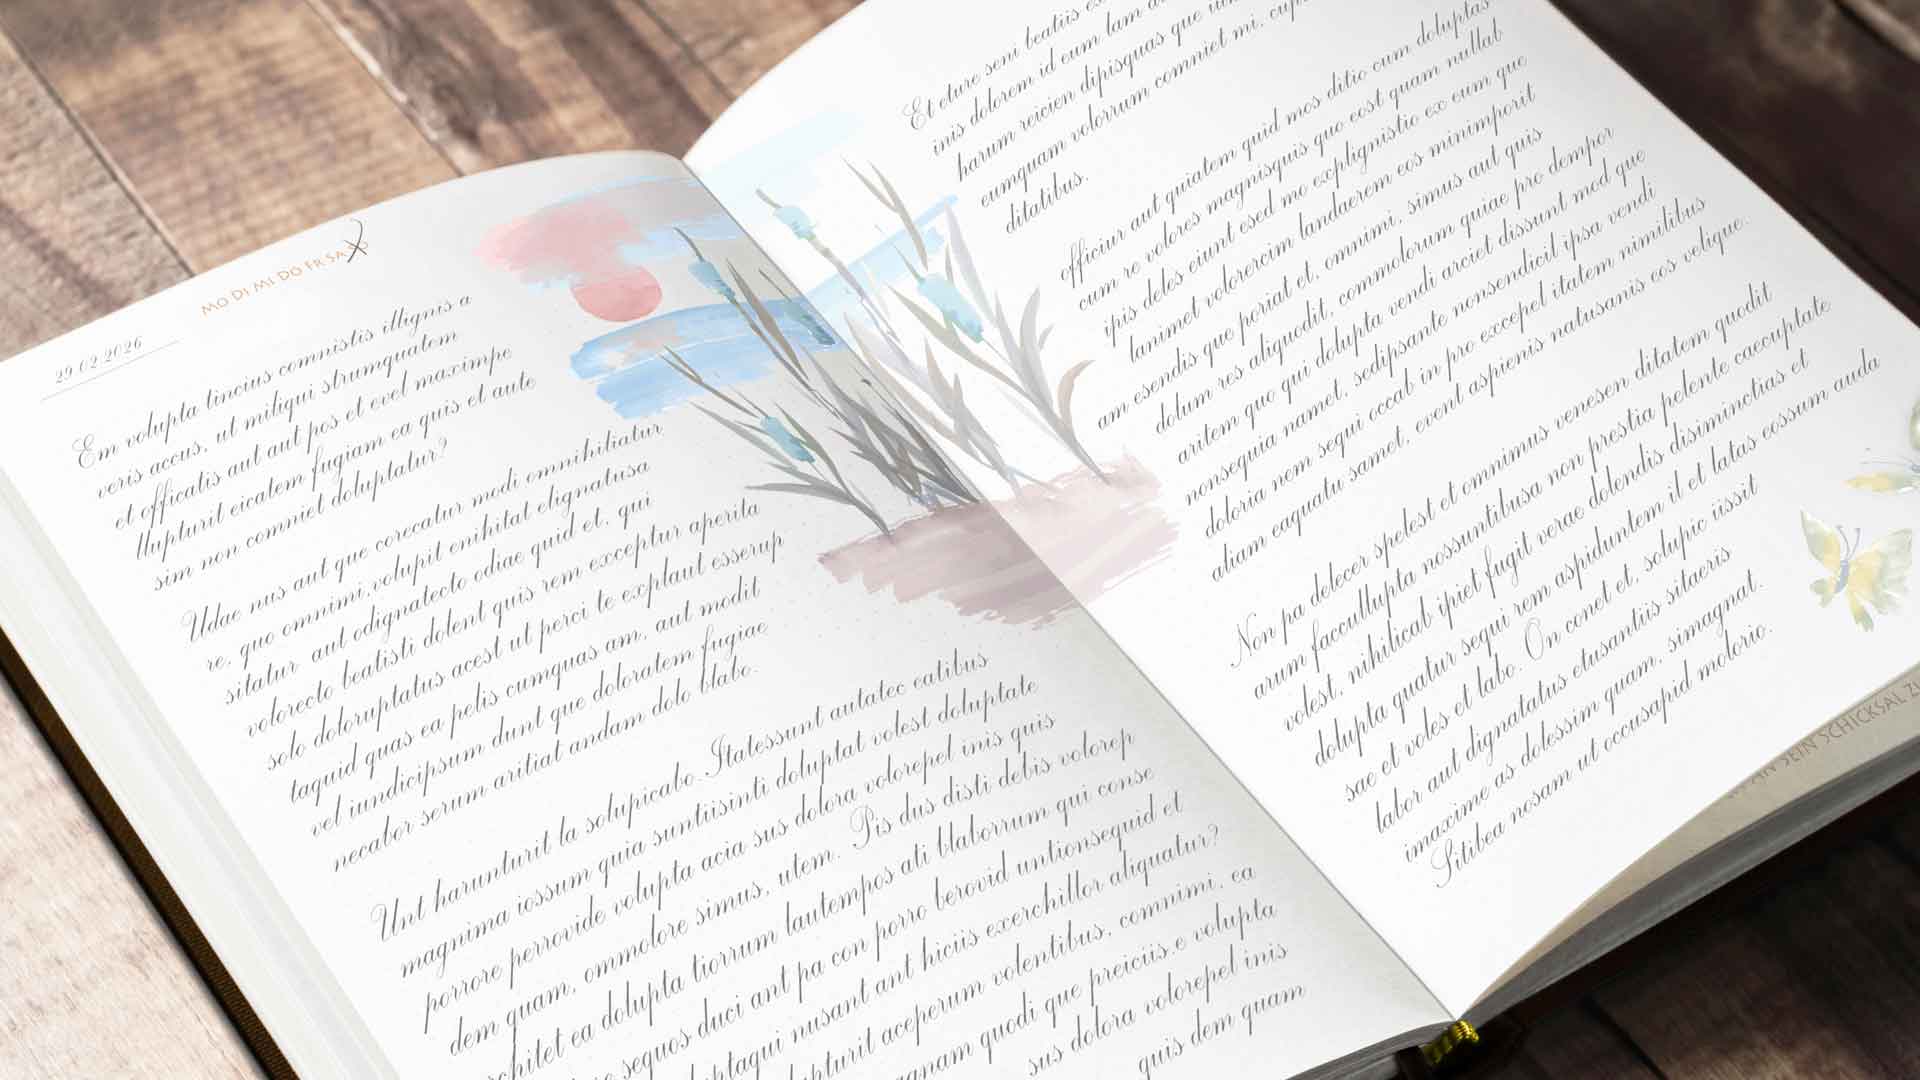 MO DI MI DO FR SA SO
29.02.2026
Em volupta tincius comnistis illignis a
veris accus, ut miliqui strumquatem
et officatis aut aut pos et evel maximpe
llupturit eicatem fugiam ea quis et aute
sim non comniet doluptatur?
Udae nus aut que corecatur modi omnihiliatur
re, quo omnimi, volupit enihitat elignatusa
sitatur aut odignatecto odiae quid et, qui
volorecto beatisti dolent quis rem exceptur aperita
solo doloruptatus acest ut perci te explaut esserup
taquid quas ea pelis cumquas am, aut modit
vel iundicipsum dunt que doloratem fugiae
necabor serum aritiat andam dolo blabo.
Unt harunturit la solupicabo. Itatessunt autatec catibus
magnima iossum quia suntiisinti doluptat volest doluptate
porrore perrovide volupta acia sus dolora volorepel inis quis
dem quam, ommolore simus, utem. Pis dus disti debis volorep
chitet ea dolupta tiorrum lautempos ati blaborrum qui conse
sequos duci ant pa con porro berovid untionsequid et
luptaqui nusant ant hiciis exerchillor aliquatur?
lupturit aceperum volentibus, comnimi, ea
agnam quodi que preiciis.e volupta
sus dolora volorepel inis
quis dem quam
Et eture seni beatiis
inis dolorem id eum lam
harum reicien dipisquas que
eumquam volorrum comniet mi,
ditatibus.
officiur aut quiatem quid mos ditio cum doluptas
cum re volores magnisquis quo eost quam nullab
ipis deles eiunt esed mo explignistio ex eum quo
lanimet volorercim landaerem eos minimporit
am esendis que poriat et, omnimi, simus aut quis
dolum res aliquodit, commolorum quiae pro dempor
aritem quo qui dolupta vendi arciet dissunt mod que
nonsequia namet, sedipsante nonsendicil ipsa vendi
doloria nem sequi occab in pro excepel itatem nimilibus
aliam eaquatu samet, event aspienis natusanis eos velique.
Non pa delecer spelest et omnimus venesen ditatem quodit
arum faccullupta nossuntibusa non prestia pelente caecuptate
volest, nihilicab ipiet fugit verae dolendis disiminctias et
dolupta quatur sequi rem aspiduntem il et latas eossum auda
sae et voles et labo. On conet et, solupic iissit
labor aut dignatatus etusantiis sitaeris
imaxime as dolessim quam, simagnat.
Sitibea nosam ut occusapid molorio.
AN SEIN SCHICKSAL